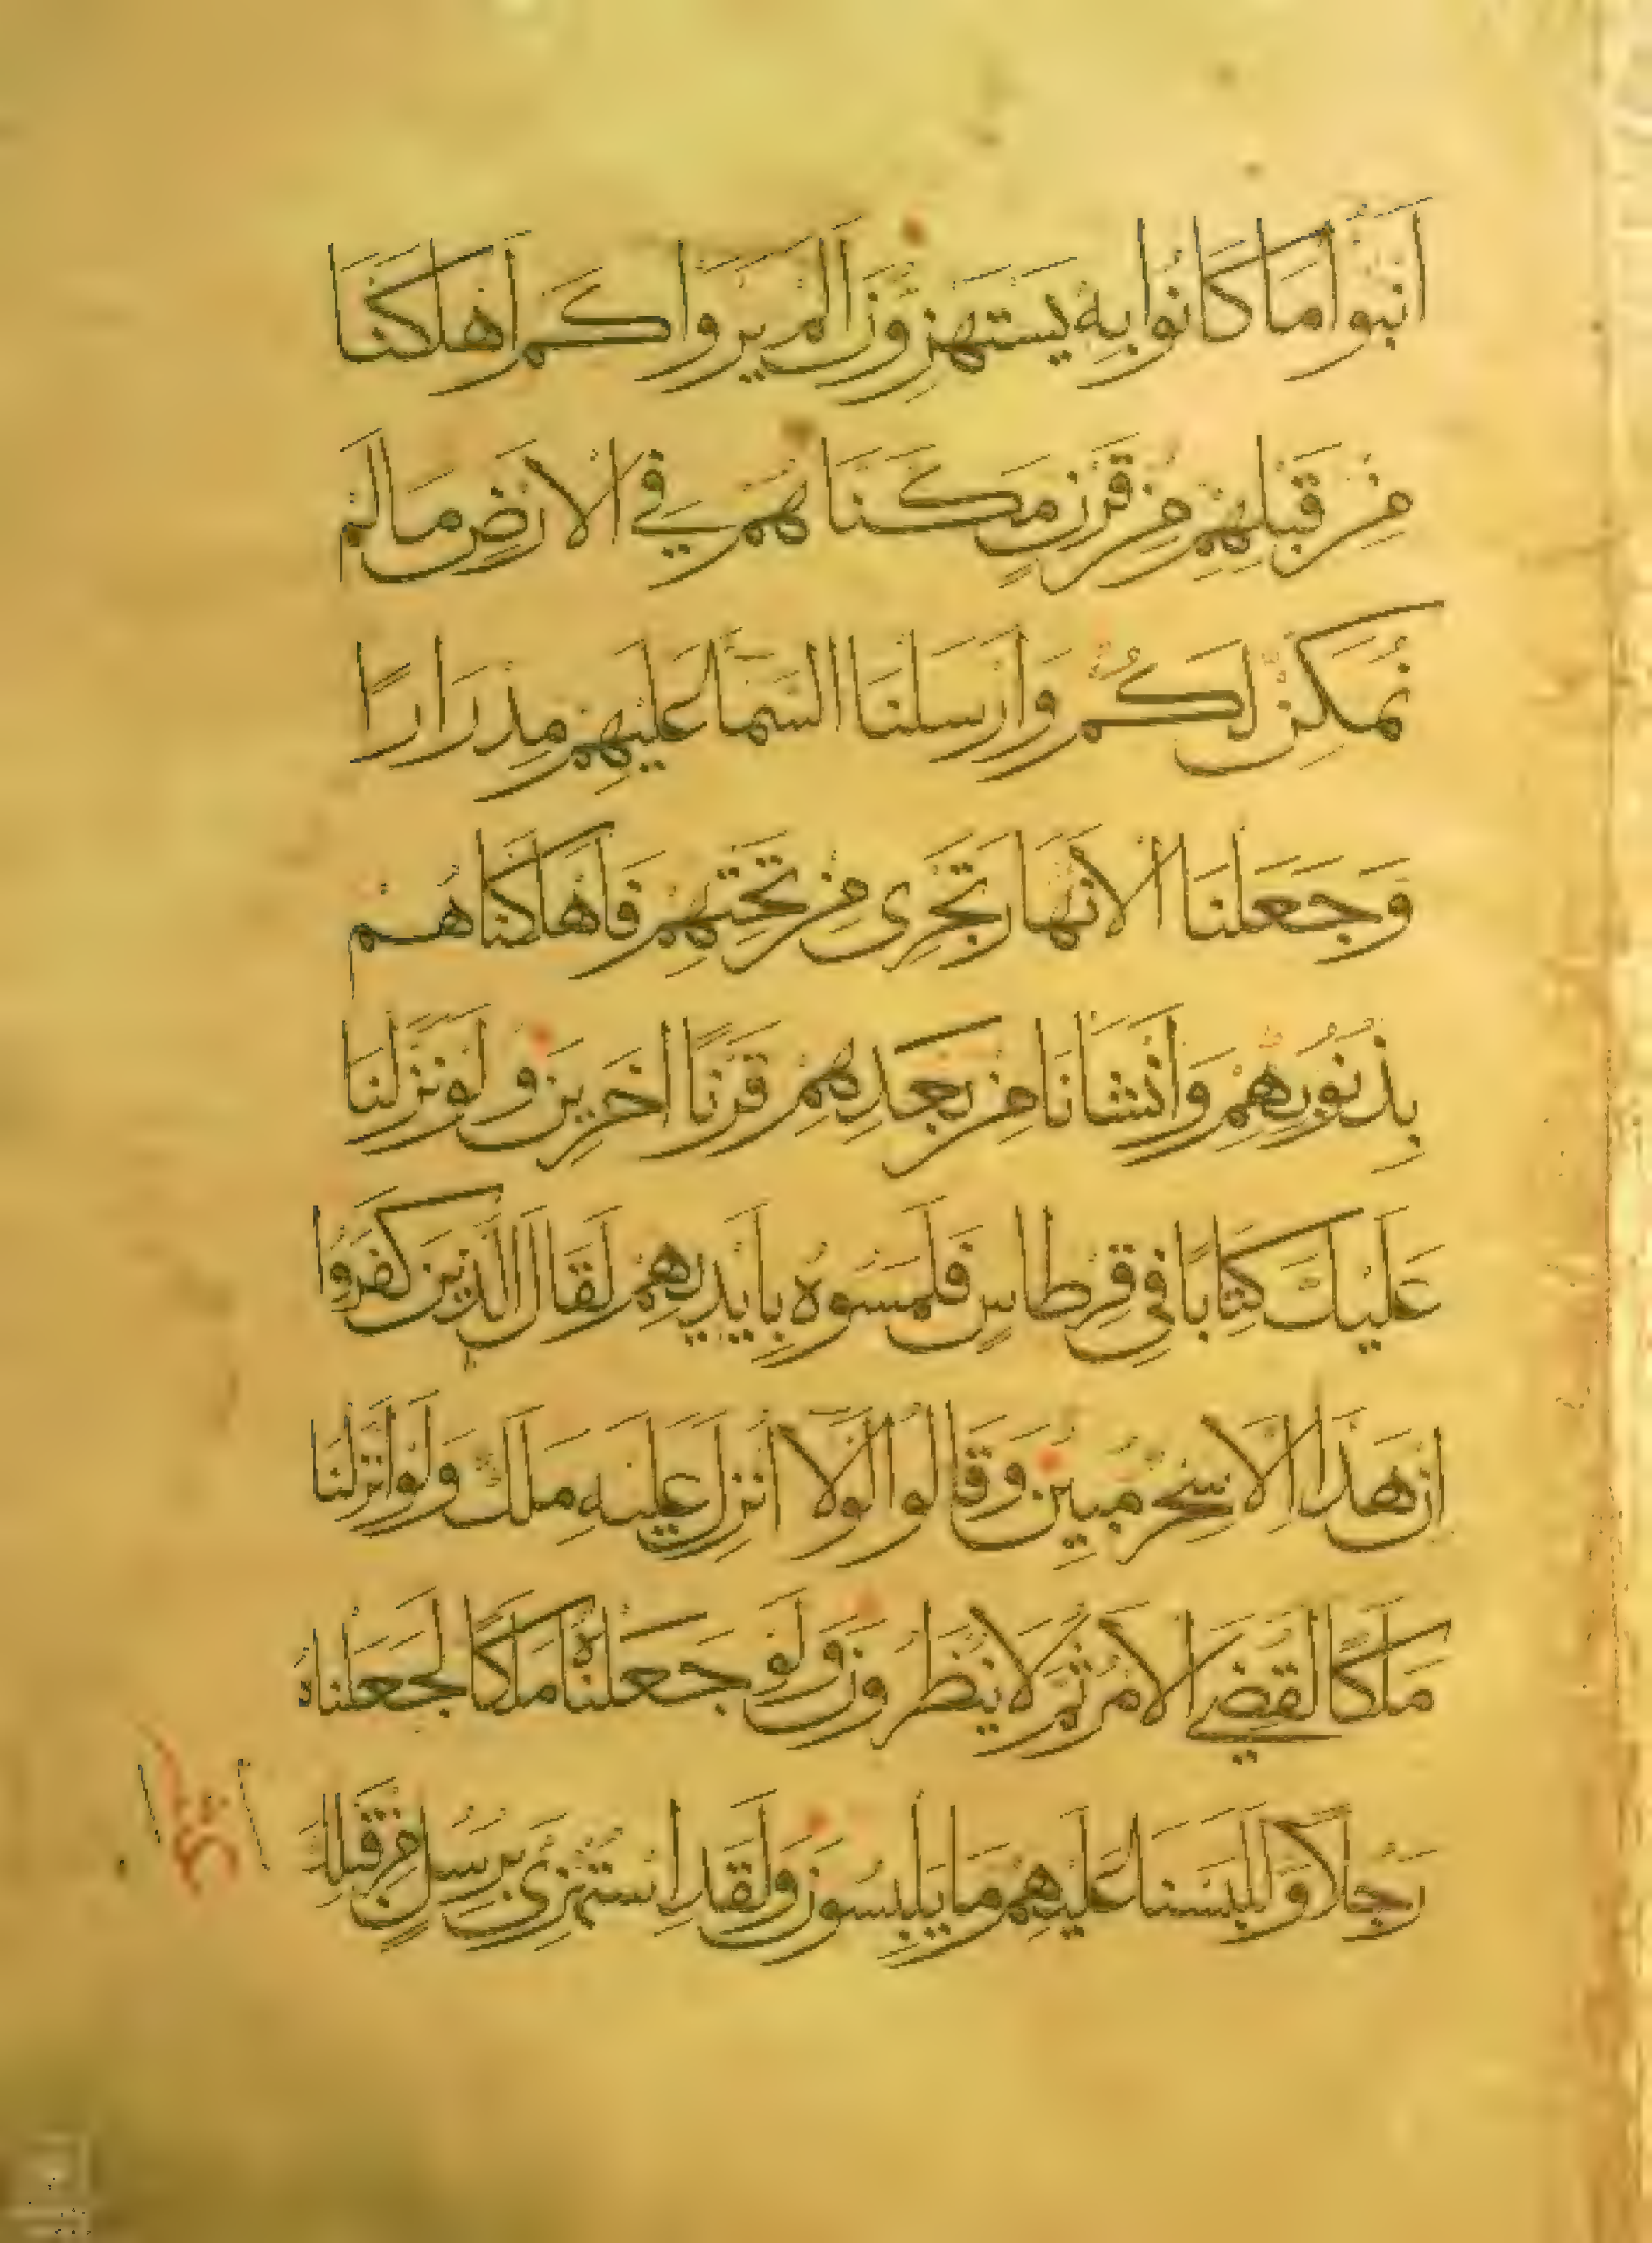 انبوا ما كانوا به يستهزون الم يروا كم اهلكنا
من قبلهم من قرن مكناهم في الارض ما لم
نمكن لكم وارسلنا السما عليهم مدرارا
وجعلنا الانهار تجرى من تحتهم فاهلكناهم
بذنوبهم وانشانا من بعدهم قرنا اخرين ولو نزلنا
عليك كتابا في قرطاس فلمسوه بايديهم لقال الذين كفروا
ان هذا الا سحر مبين وقالوا لولا انزل عليه ملك ولو انزلنا
ملكا لقضي الامر ثم لا ينظرون ولو جعلناه ملكا لجعلناه
رجلا وللبسنا عليهم ما يلبسون ولقد استهزئ برسل من قبلك